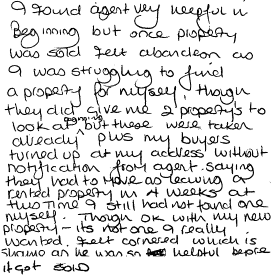 I found agent very helpful in
Beginning but once property
was sold felt abandon as
I was struggling to find
a property for myself, though
they did give me 2 property's to
look at but these were taken
already plus my buyers
turned up at my address without
notification from agent. Saying
they had to leaving a
rented property in 4 weeks at
this time I still had not found one
myself. Though ok with my new
property - its not one I really
wanted. Felt cornered which is
shame as he was so helpful before
it got sold